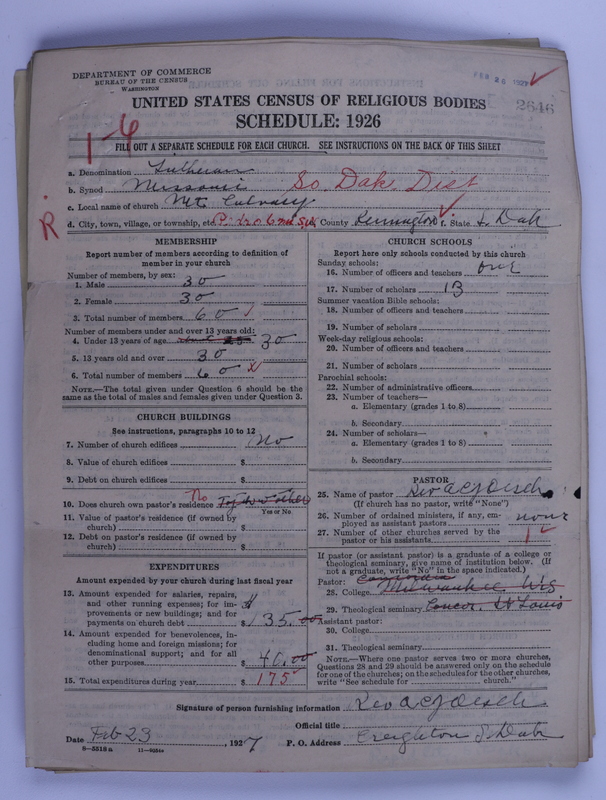 DEPARTMENT OF COMMERCE
BUREAU OF THE CENSUS
WASHINGTON
FEB 26 1927
2646
UNITED STATES CENSUS OF RELIGIOUS BODIES
SCHEDULE: 1926
1-6
FILL OUT A SEPARATE SCHEDULE FOR EACH CHURCH. SEE INSTRUCTIONS ON THE BACK OF THIS SHEET
a. Denomination Lutheran
b. Synod Missouri So. Dak. Dist
c. Local name of church Mt. Calvary
R
d. City, town, village, or township, etc. County Pennington f. State S Dak
MEMBERSHIP
Report number of members according to definition of
member in your church
Number of members, by sex:
1. Male 30
2. Female 30
3. Total number of members 60
Number of members under and over 13 years old:
4. Under 13 years of age 30
5. 13 years old and over 30
6. Total number of members 60 x
NOTE.—The total given under Question 6 should be the
same as the total of males and females given under Question 3.
CHURCH BUILDINGS
See instructions, paragraphs 10 to 12
7. Number of church edifices No
8. Value of church edifices $
9. Debt on church edifices $
10. Does church own pastor's residence No
Yes or No
11. Value of pastor's residence (if owned by
church) $
12. Debt on pastor's residence (if owned by
church) $
EXPENDITURES
Amount expended by your church during last fiscal year
13. Amount expended for salaries, repairs,
and other running expenses; for im- $
provements or new buildings; and for
payments on church debt $ 135.00
14. Amount expended for benevolences, in-
cluding home and foreign missions; for
denominational support; and for all
other purposes $ 40.00
15. Total expenditures during year $ 175
CHURCH SCHOOLS
Report here only schools conducted by this church
Sunday schools:
16. Number of officers and teachers one
17. Number of scholars 13
Summer vacation Bible schools:
18. Number of officers and teachers
19. Number of scholars
Week-day religious schools:
20. Number of officers and teachers
21. Number of scholars
Parochial schools:
22. Number of administrative officers
23. Number of teachers—
a. Elementary (grades 1 to 8)
b. Secondary
24. Number of scholars—
a. Elementary (grades 1 to 8)
b. Secondary
PASTOR
25. Name of pastor Rev
(If church has no pastor, write "None")
26. Number of ordained ministers, if any, em-
ployed as assistant pastors none
27. Number of other churches served by the
pastor or his assistants 1
If pastor (or assistant pastor) is a graduate of a college or
theological seminary, give name of institution below. (If
not a graduate, write "No" in the space indicated.)
Pastor: Concordia
28. College Milwaukee Wis
29. Theological seminary Concor. St Louis
Assistant pastor:
30. College
31. Theological seminary
NOTE.—Where one pastor serves two or more churches,
Questions 28 and 29 should be answered only on the schedule
for one of the churches; on the schedules for the other churches,
write "See schedule for church."
Signature of person furnishing information Rev
Official title
Date Feb 23, 1927 P. O. Address Creighton S Dak
8-5518 a